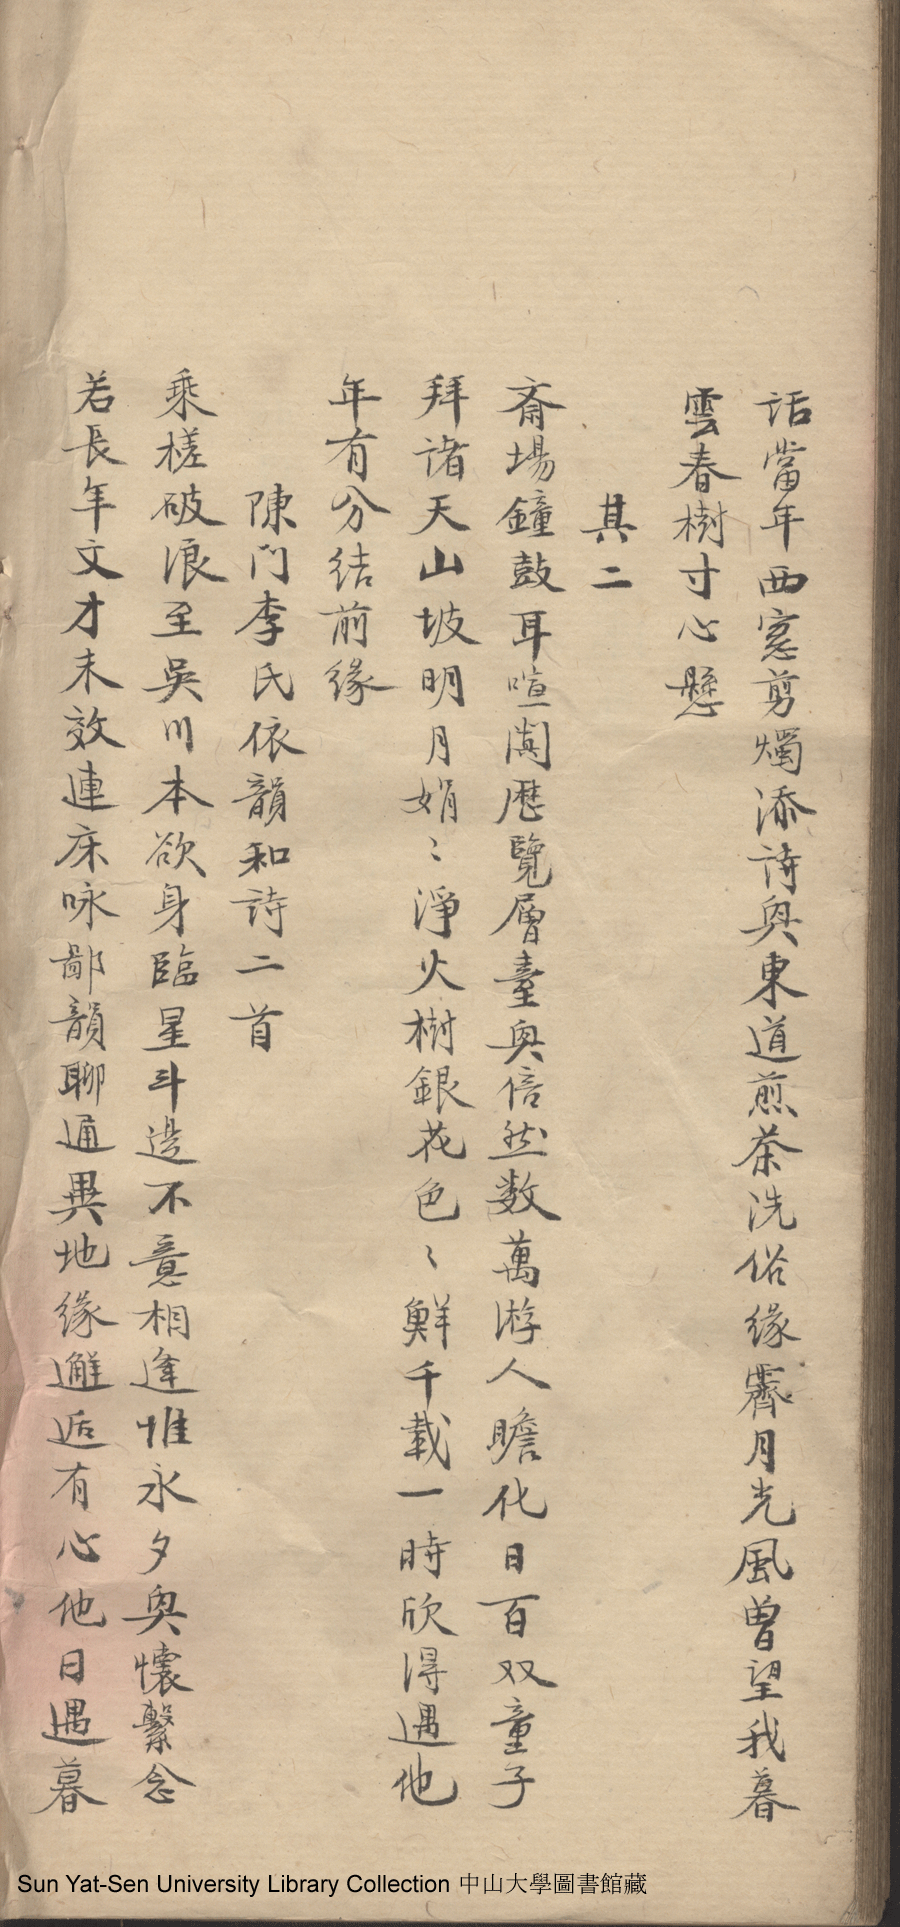 話當年西窓剪燭添詩興東道煎茶洗俗緣霽月光風曾望我暮
雲春樹寸心懸
其二
齋場鐘鼓耳喧闐歷覽層臺興倍然数萬游人瞻化日百双童子
拜諸天山坡明月娟〻淨火樹銀花色〻鮮千載一時欣得遇他
年有分結前緣
陳門李氏依韻和詩二首
乘槎破浪至吳川本欲身臨星斗邊不意相逢惟永夕興懷繫念
若長年文才未效連床咏鄙韻聊通異地緣邂逅有心他日遇暮
Sun Yat-Sen University Library Collection 中山大學圖書館藏